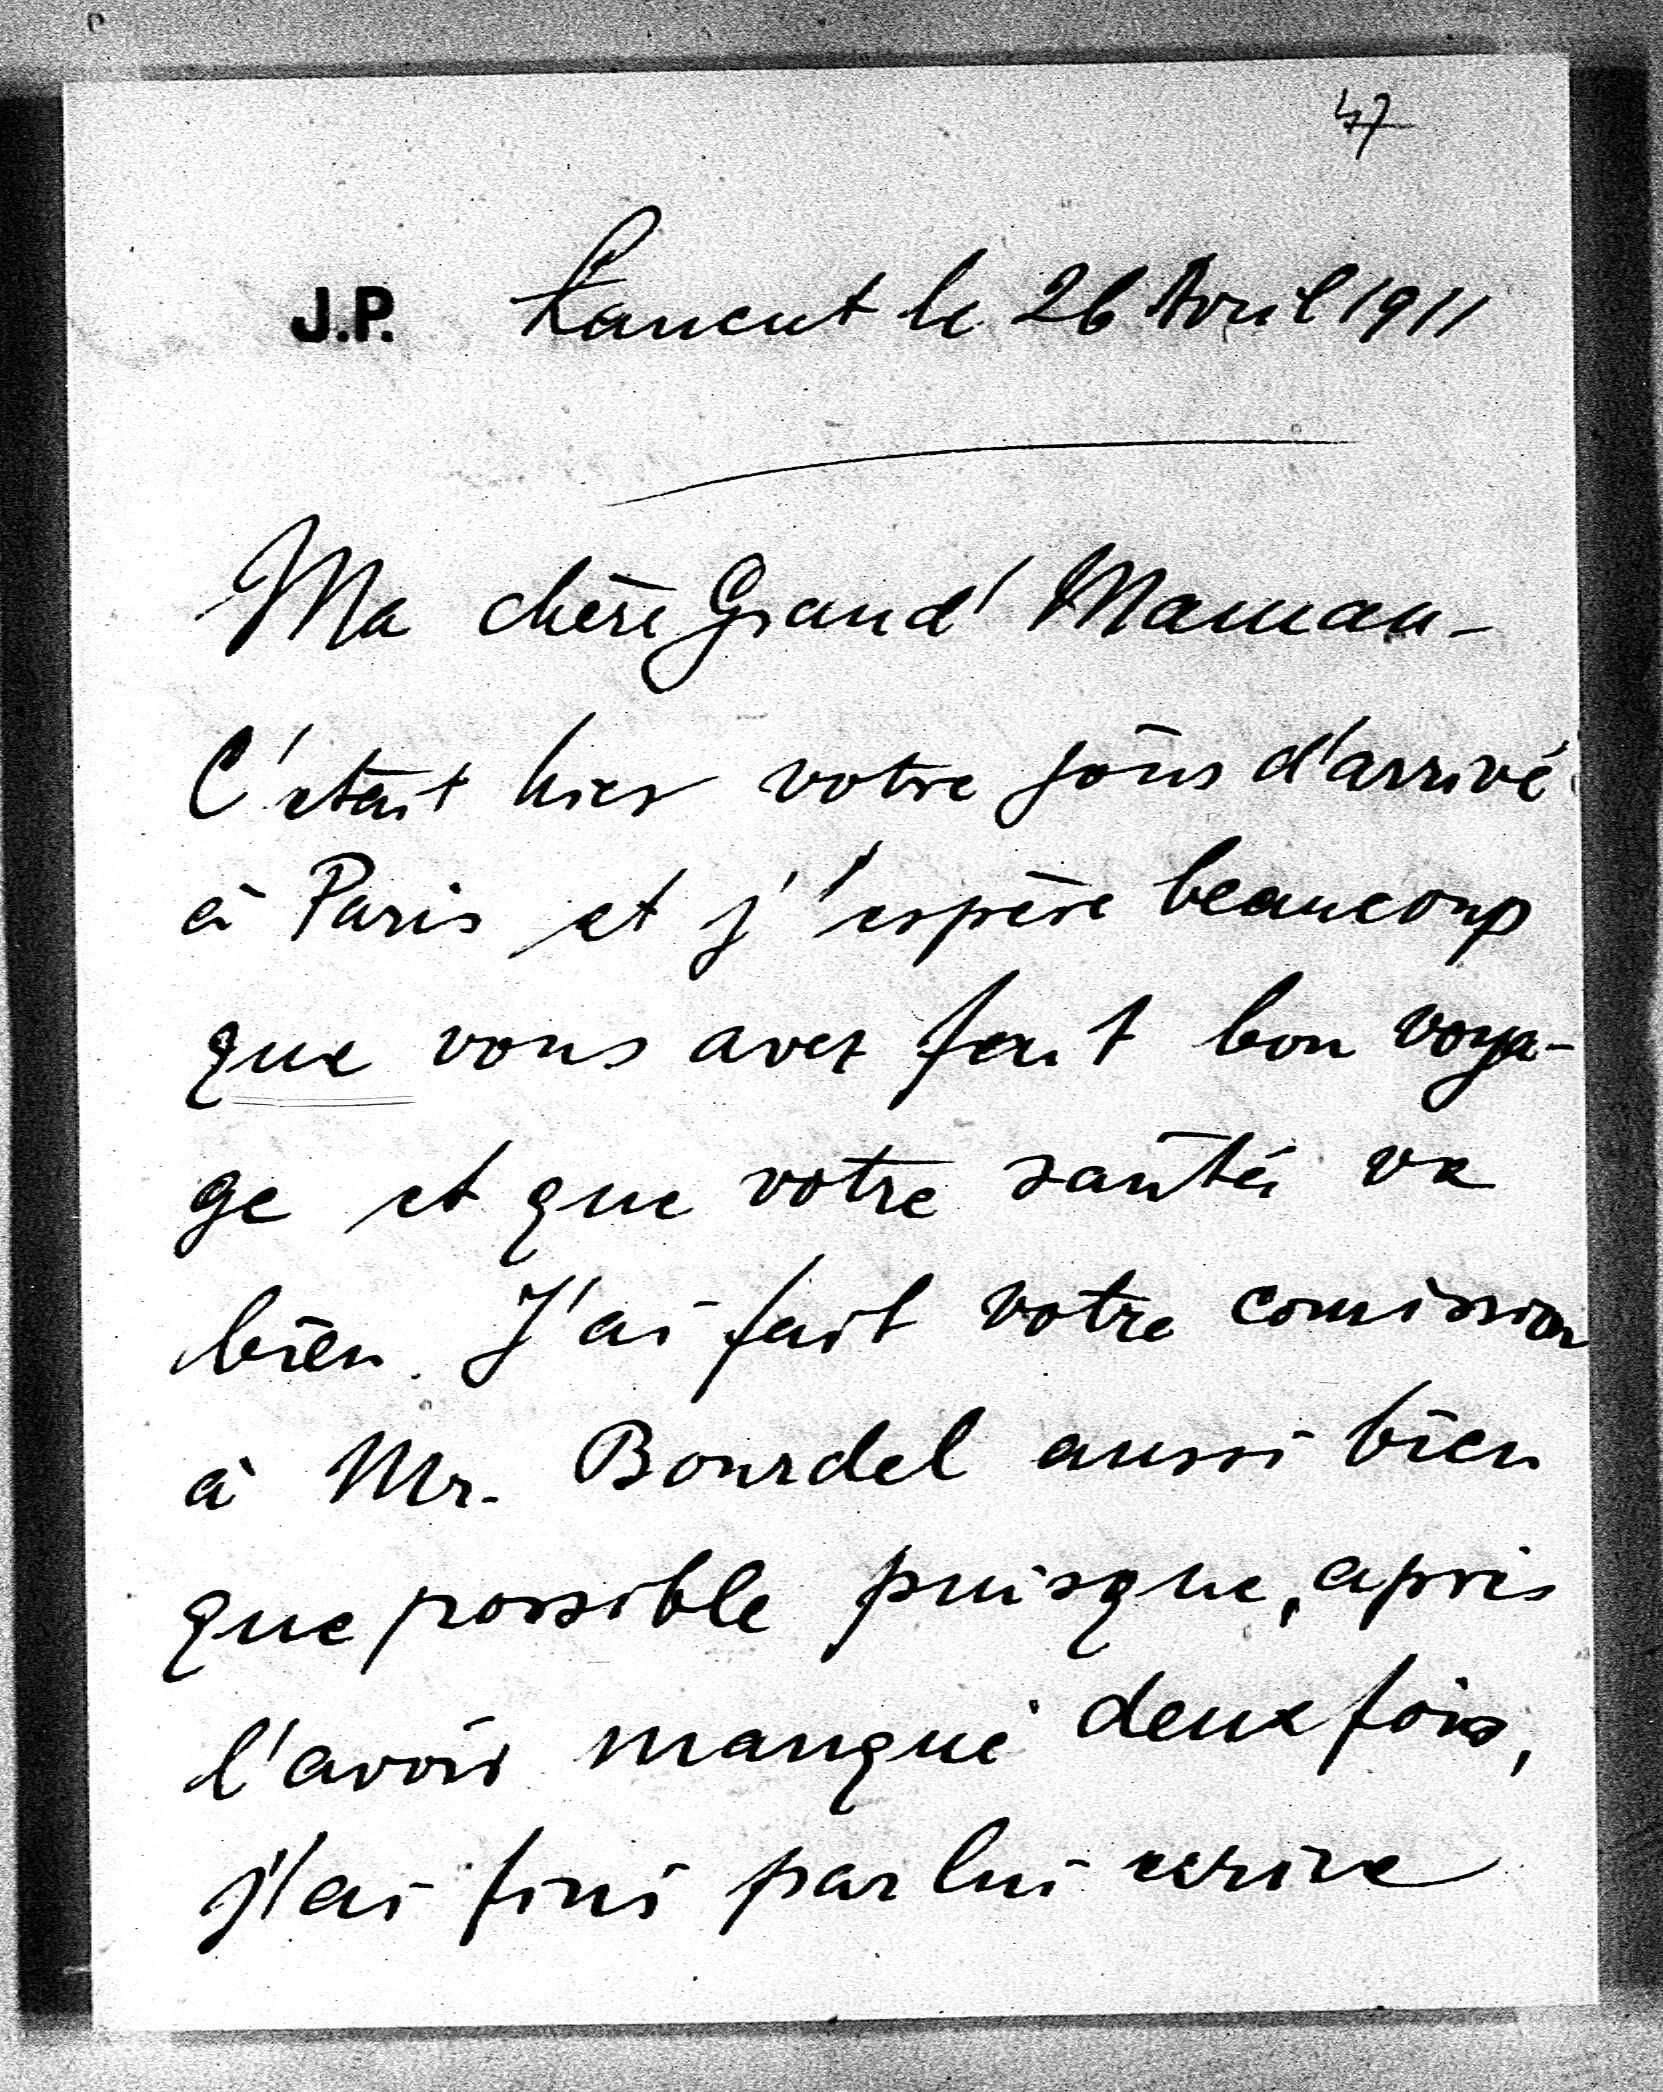 47
J.P. Łancut le 26 Avril 1911
Ma chère Grand' Maman -
C'etait hier votre jour d'arrivé
à Paris et j'espère beaucoup
que vous avez fait bon voya-
ge et que votre santé va
bien. J'ai fait votre comission
à Mr. Bourdel aussi bien
que possible puisque, après
l'avoir manqué deux fois,
j'ai fini par lui ecrire